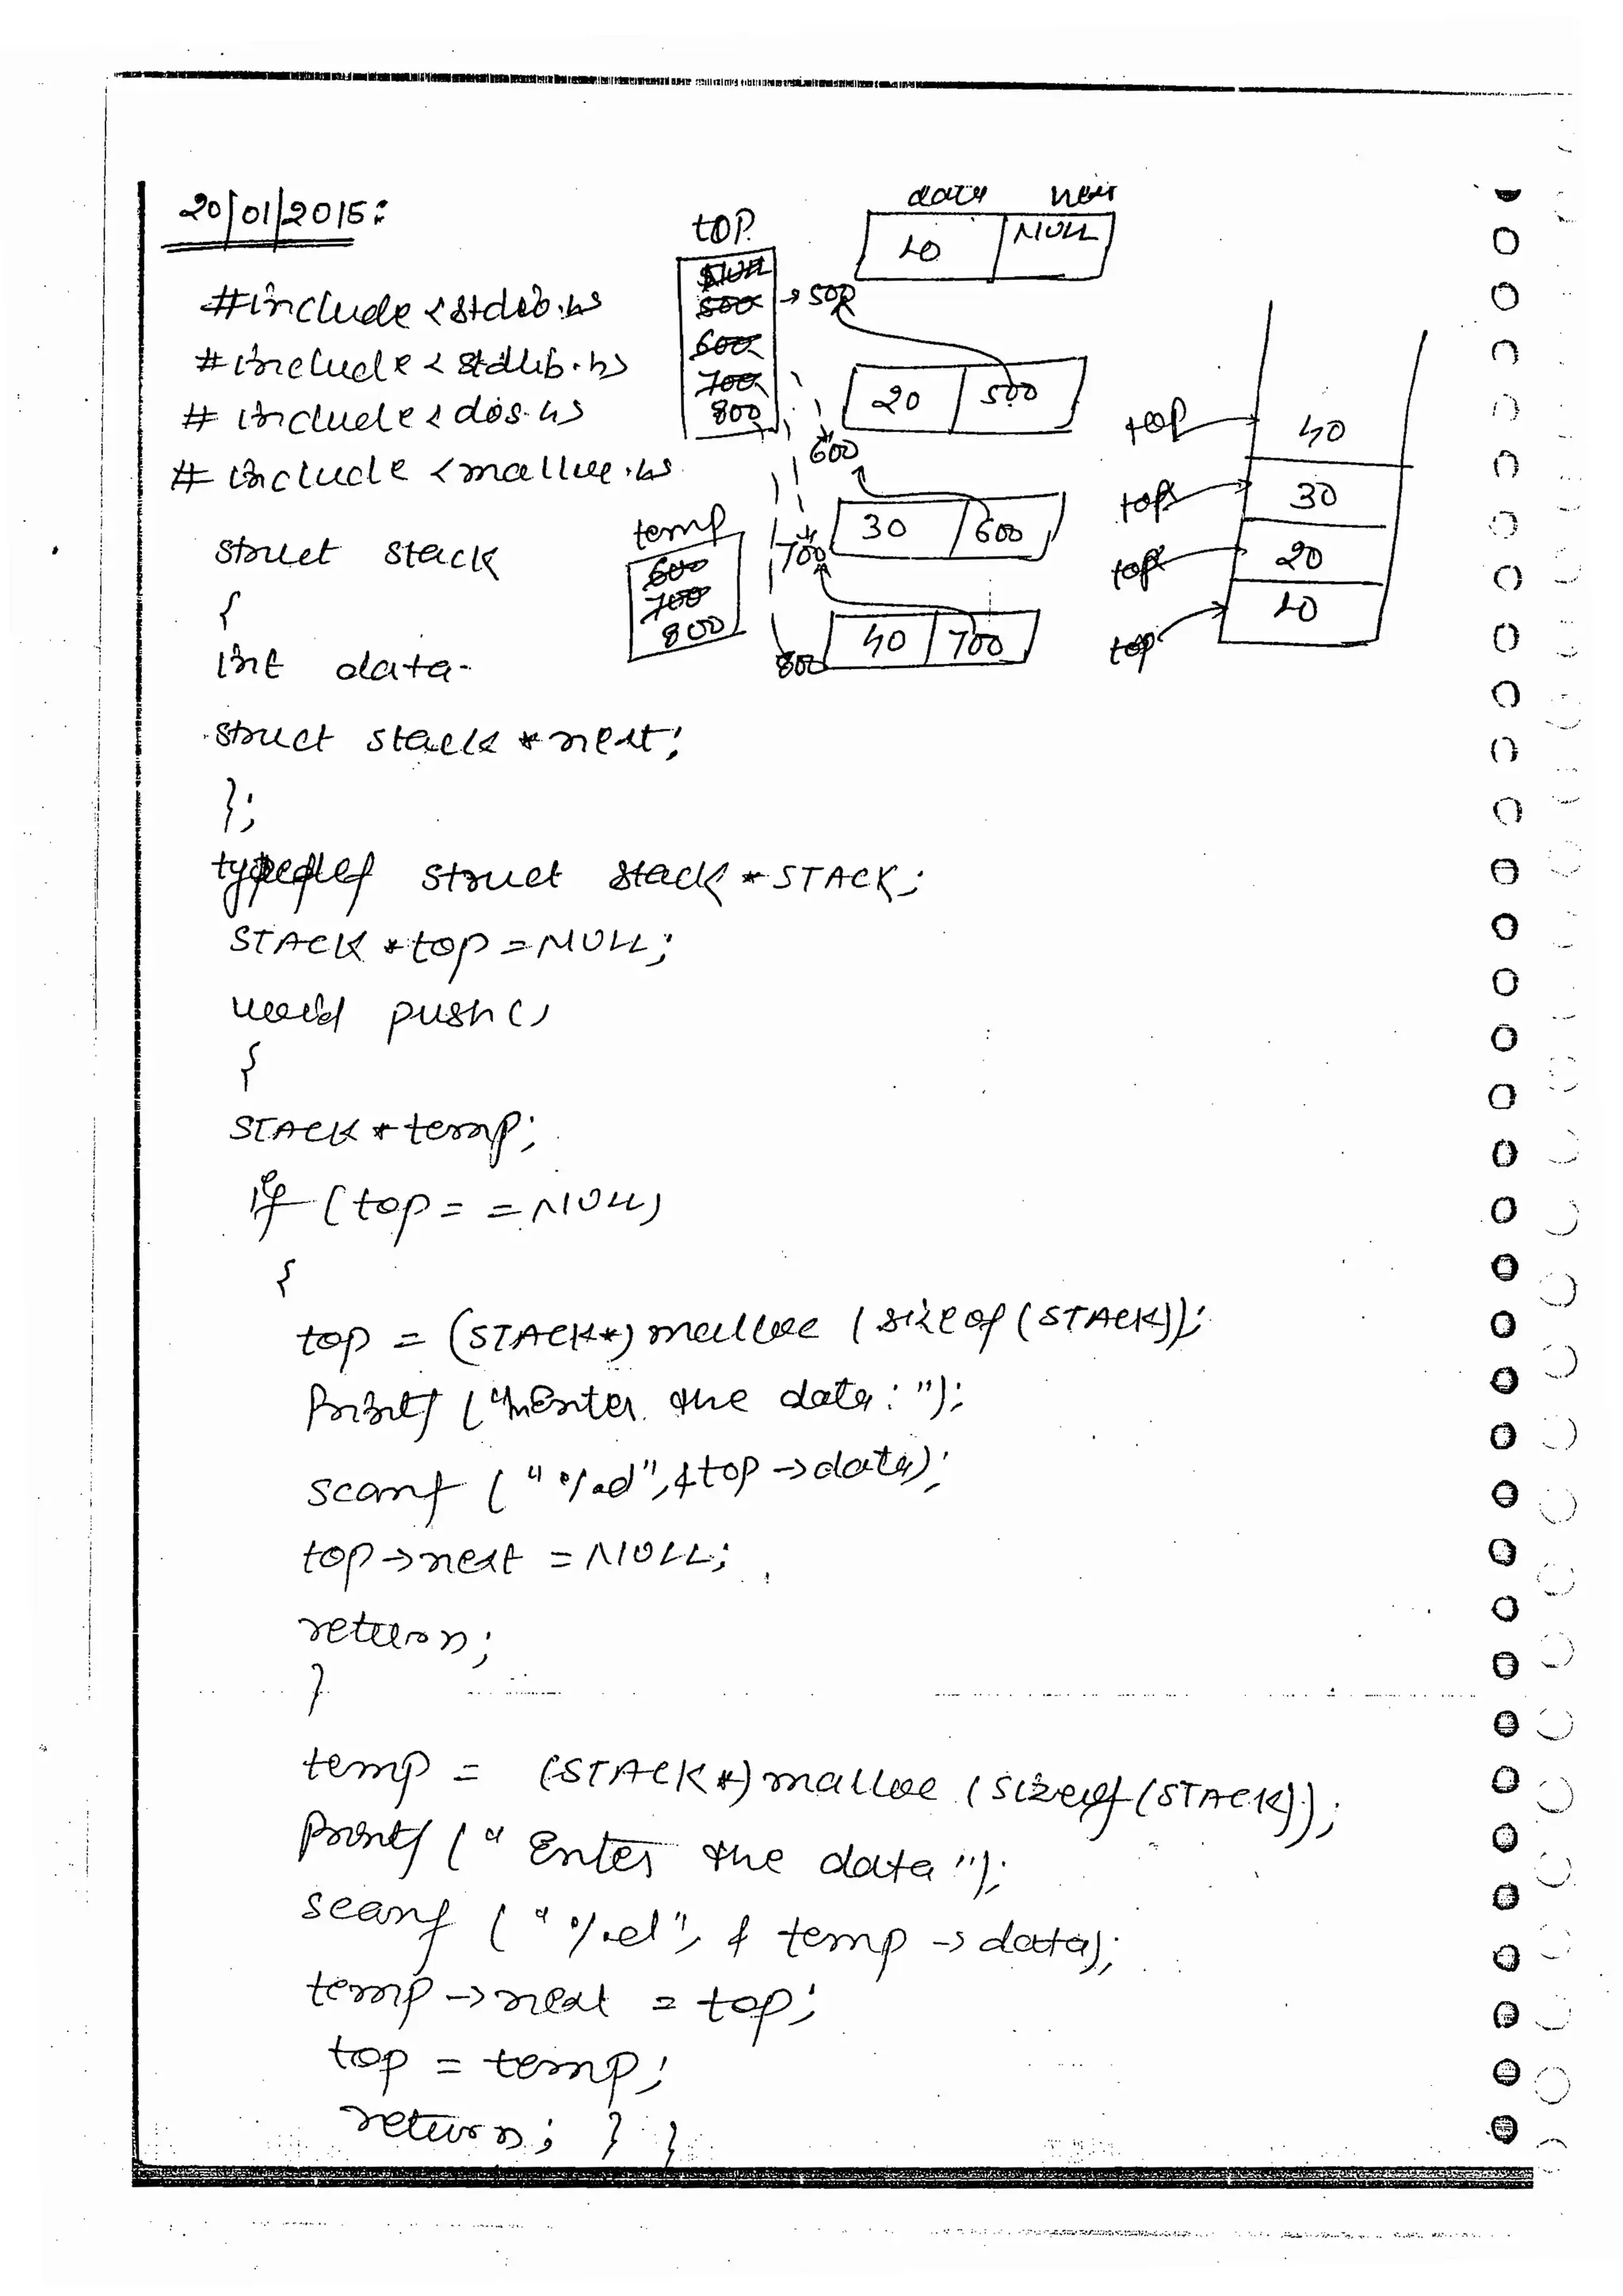 20/01/2015:
#include <stdio.h>
#include <stdlib.h>
#include <dos.h>
#include <malloc.h>
struct stack
{
int data
struct stack *next;
};
typedef struct stack *STACK;
STACK *top = NULL;
void push()
{
STACK *temp;
if (top == NULL)
{
top = (STACK*) malloc (sizeof (STACK));
Printf ("\nEnter the data: ");
scanf ("%d", &top->data);
top->next = NULL;
return;
}
temp = (STACK*) malloc (sizeof (STACK));
Printf (" Enter the data ");
scanf ("%d", & temp -> data);
temp -> next = top;
top = temp;
return; } }
top
NULL
500
600
700
800
temp
600
700
800
data next
10 NULL
500
20 500
600
30 600
700
40 700
800
top 40
top 30
top 20
top 10